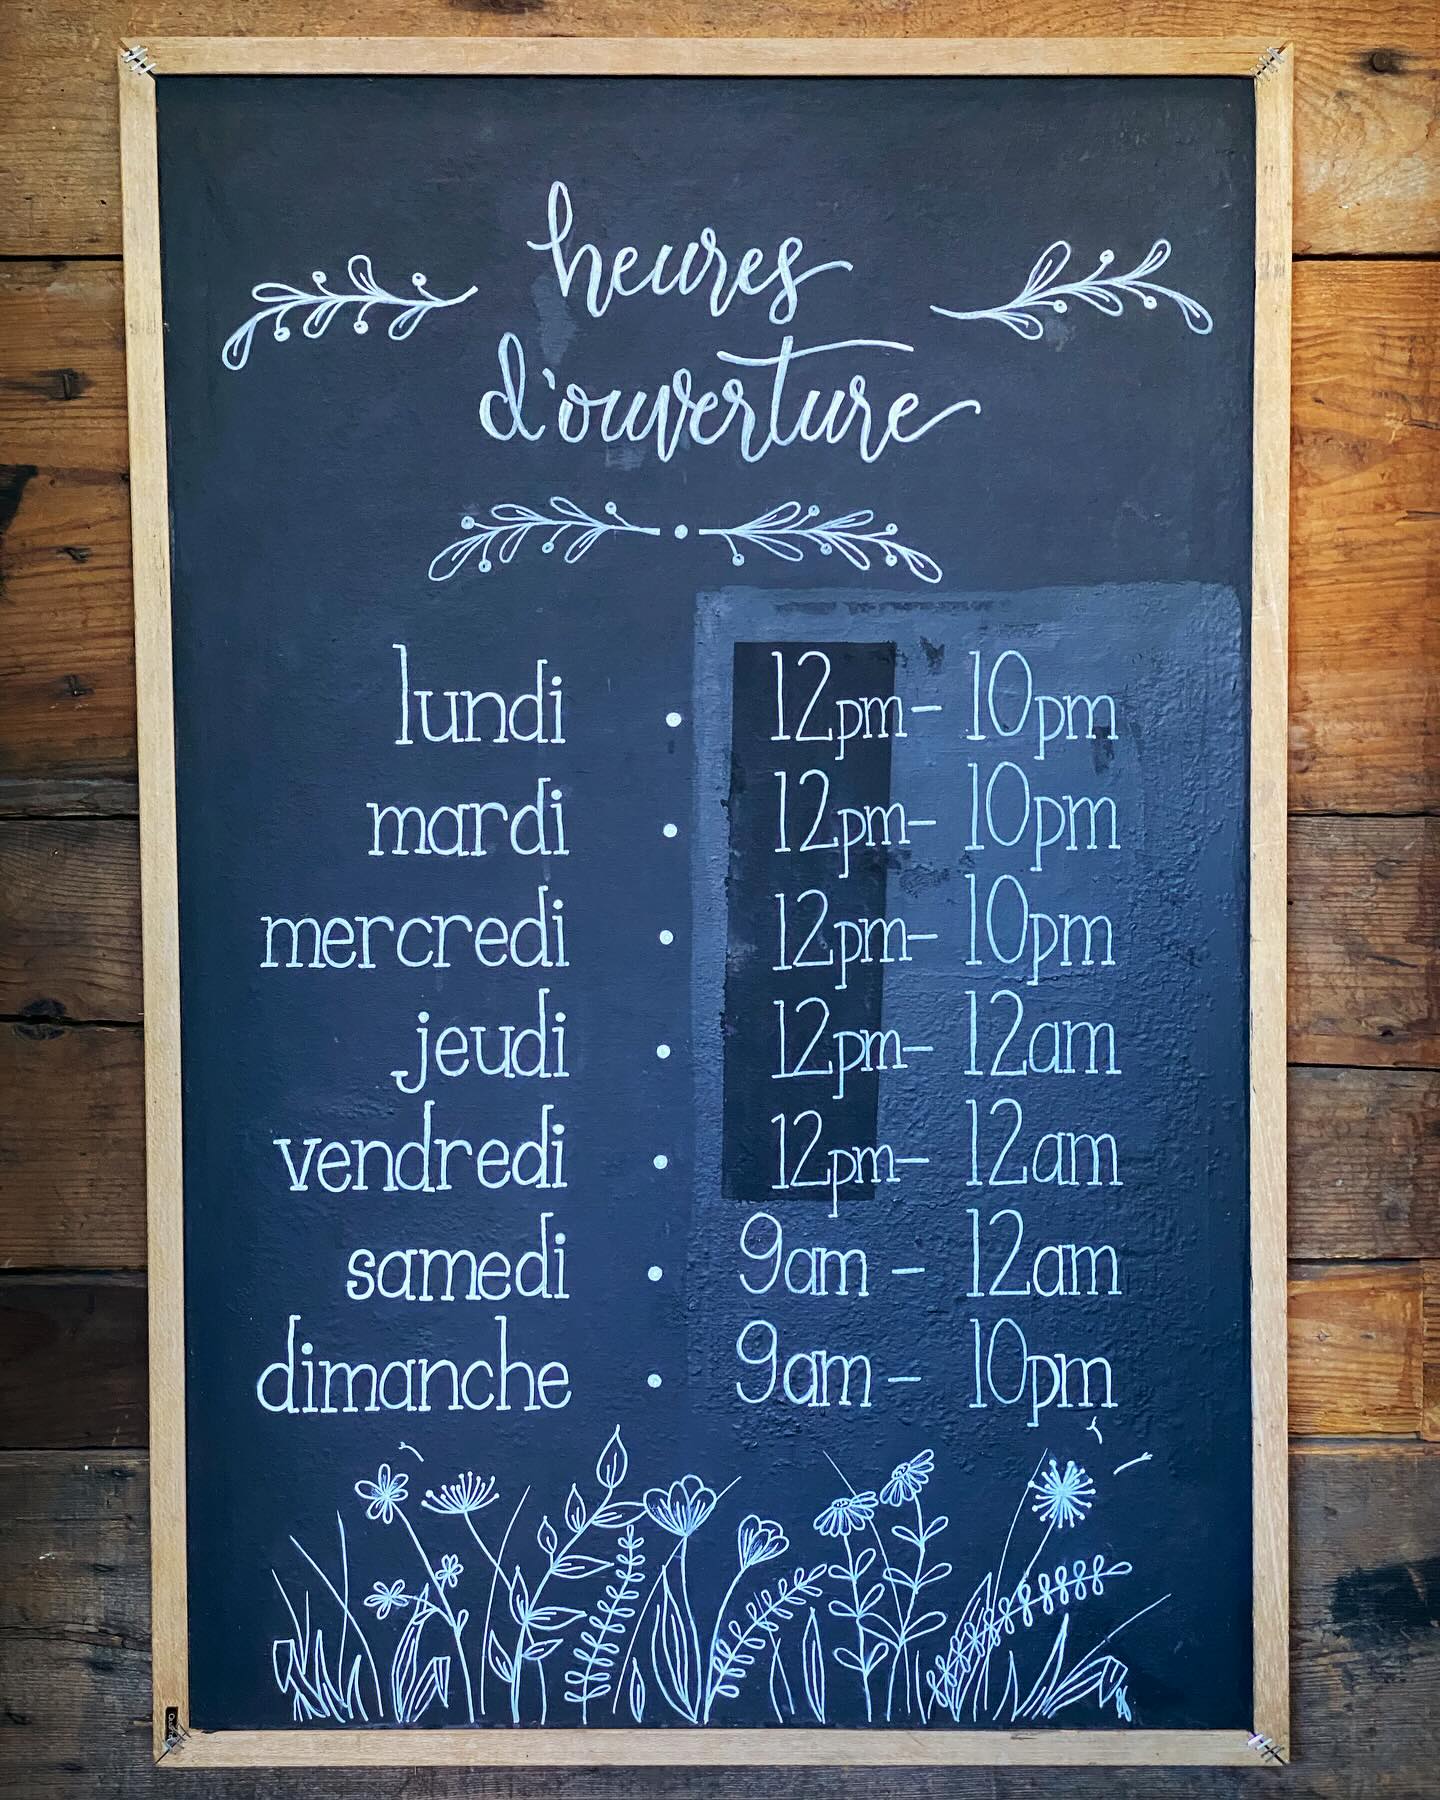 heures
d'ouverture
lundi • 12pm - 10pm
mardi • 12pm - 10pm
mercredi • 12pm - 10pm
jeudi • 12pm - 12am
vendredi • 12pm - 12am
samedi • 9am - 12am
dimanche • 9am - 10pm